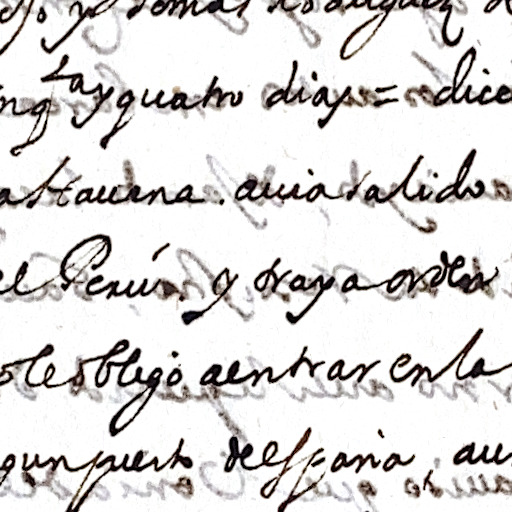 y demas
ng.ta y quatro dias = dice
astauana. auia salido
el Perú. y traya orden
o le obligò a entrar en la
gun puerto de españa, au